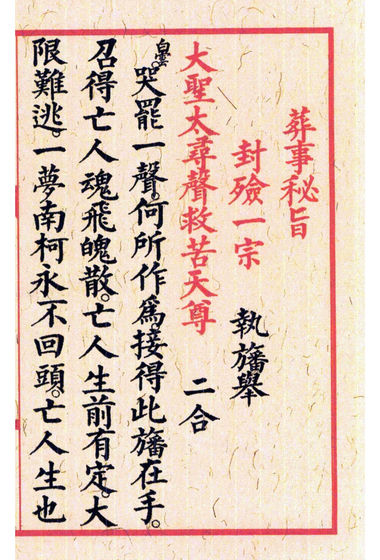 葬事秘旨
封殮一宗 執旛舉
大聖太尋聲救苦天尊 二合
白雲哭罷一聲。何所作為。接得此旛在手。
召得亡人魂飛魄散。亡人生前有定。大
限難逃。一夢南柯永不回頭。亡人生也